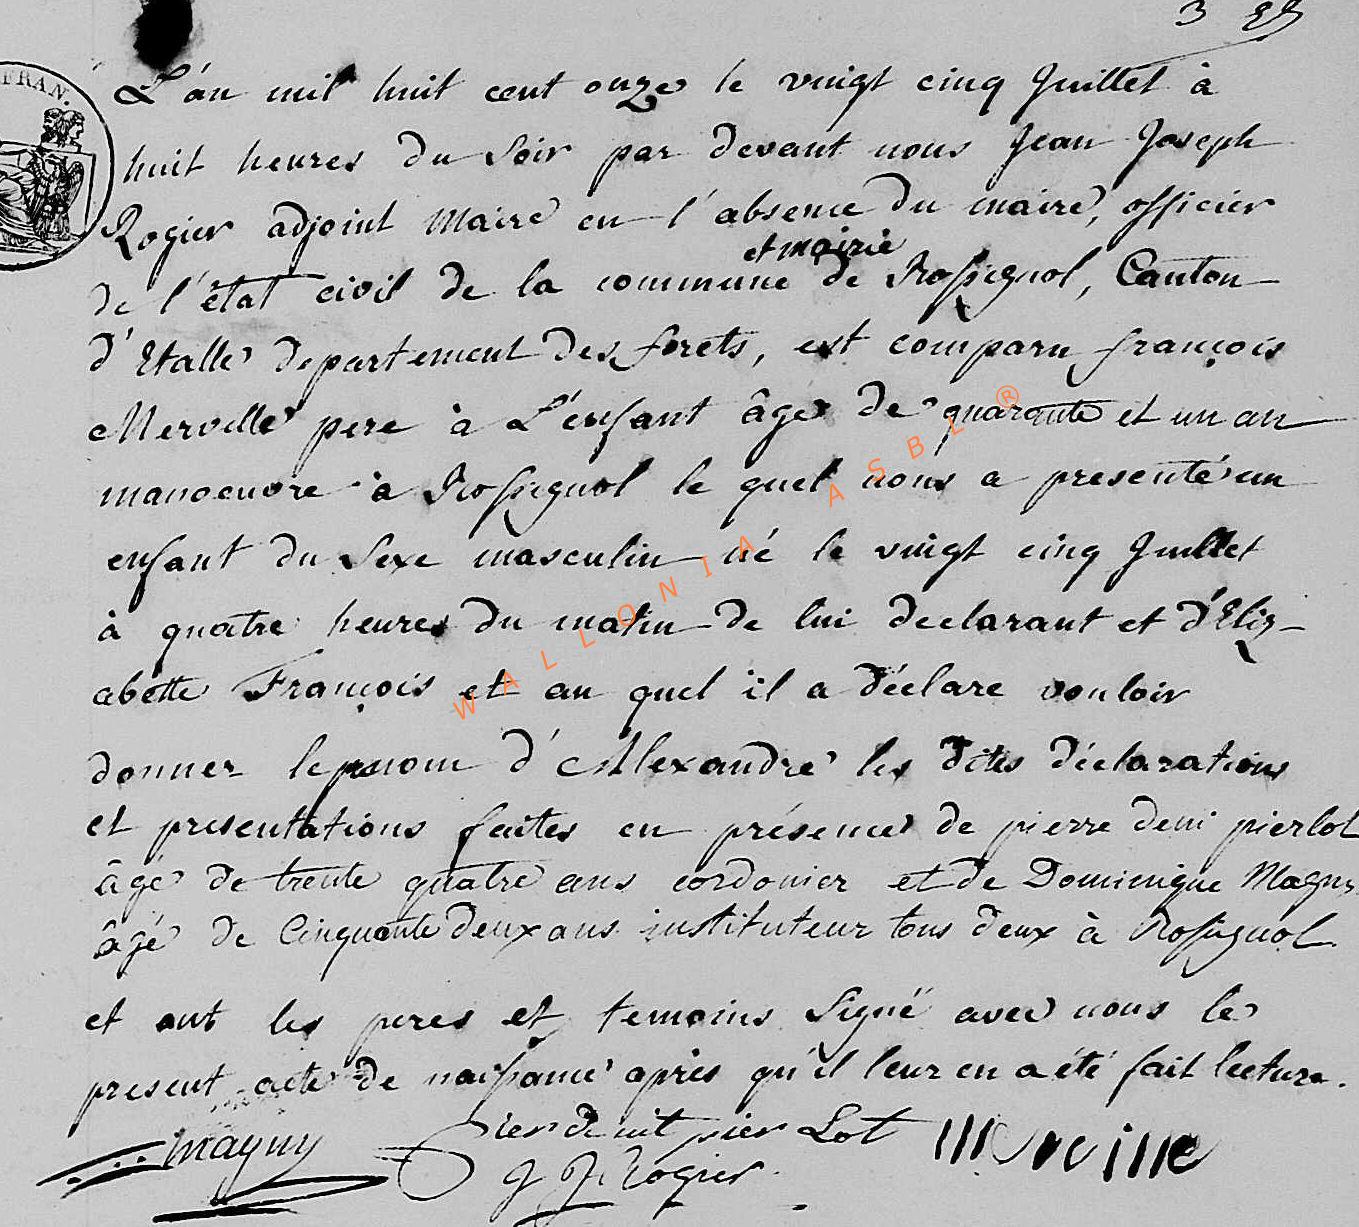 3
FRAN.
L'an mil huit cent onze le vingt cinq Juillet à
huit heures du Soir par devant nous Jean Joseph
Rogier adjoint Maire en l'absence du maire, officier
et mairie
de l'état civil de la commune de Rossignol, Canton
d'Etalle departement des forets, est comparu françois
Merville pere à L'enfant âge de quarante et un an
manoeuvre à Rossignol le quel nous a presenté un
enfant du Sexe masculin né le vingt cinq Juillet
à quatre heures du matin de lui declarant et d'Eliz-
abette François et au quel il a déclare vouloir
donner le prenom d'Alexandre les dites déclarations
et presentations faites en présence de pierre deni pierlot
âgé de trente quatre ans cordonier et de Dominique Magny
âgé de Cinquante deux ans instituteur tous deux à Rossignol
et ont les peres et temoins Signé avec nous le
present acte de naissance après qu'il leur en a été fait lecture.
Magny Pier denit pier Lot Merville
J J Rogier
WALLONIA ASBL ®